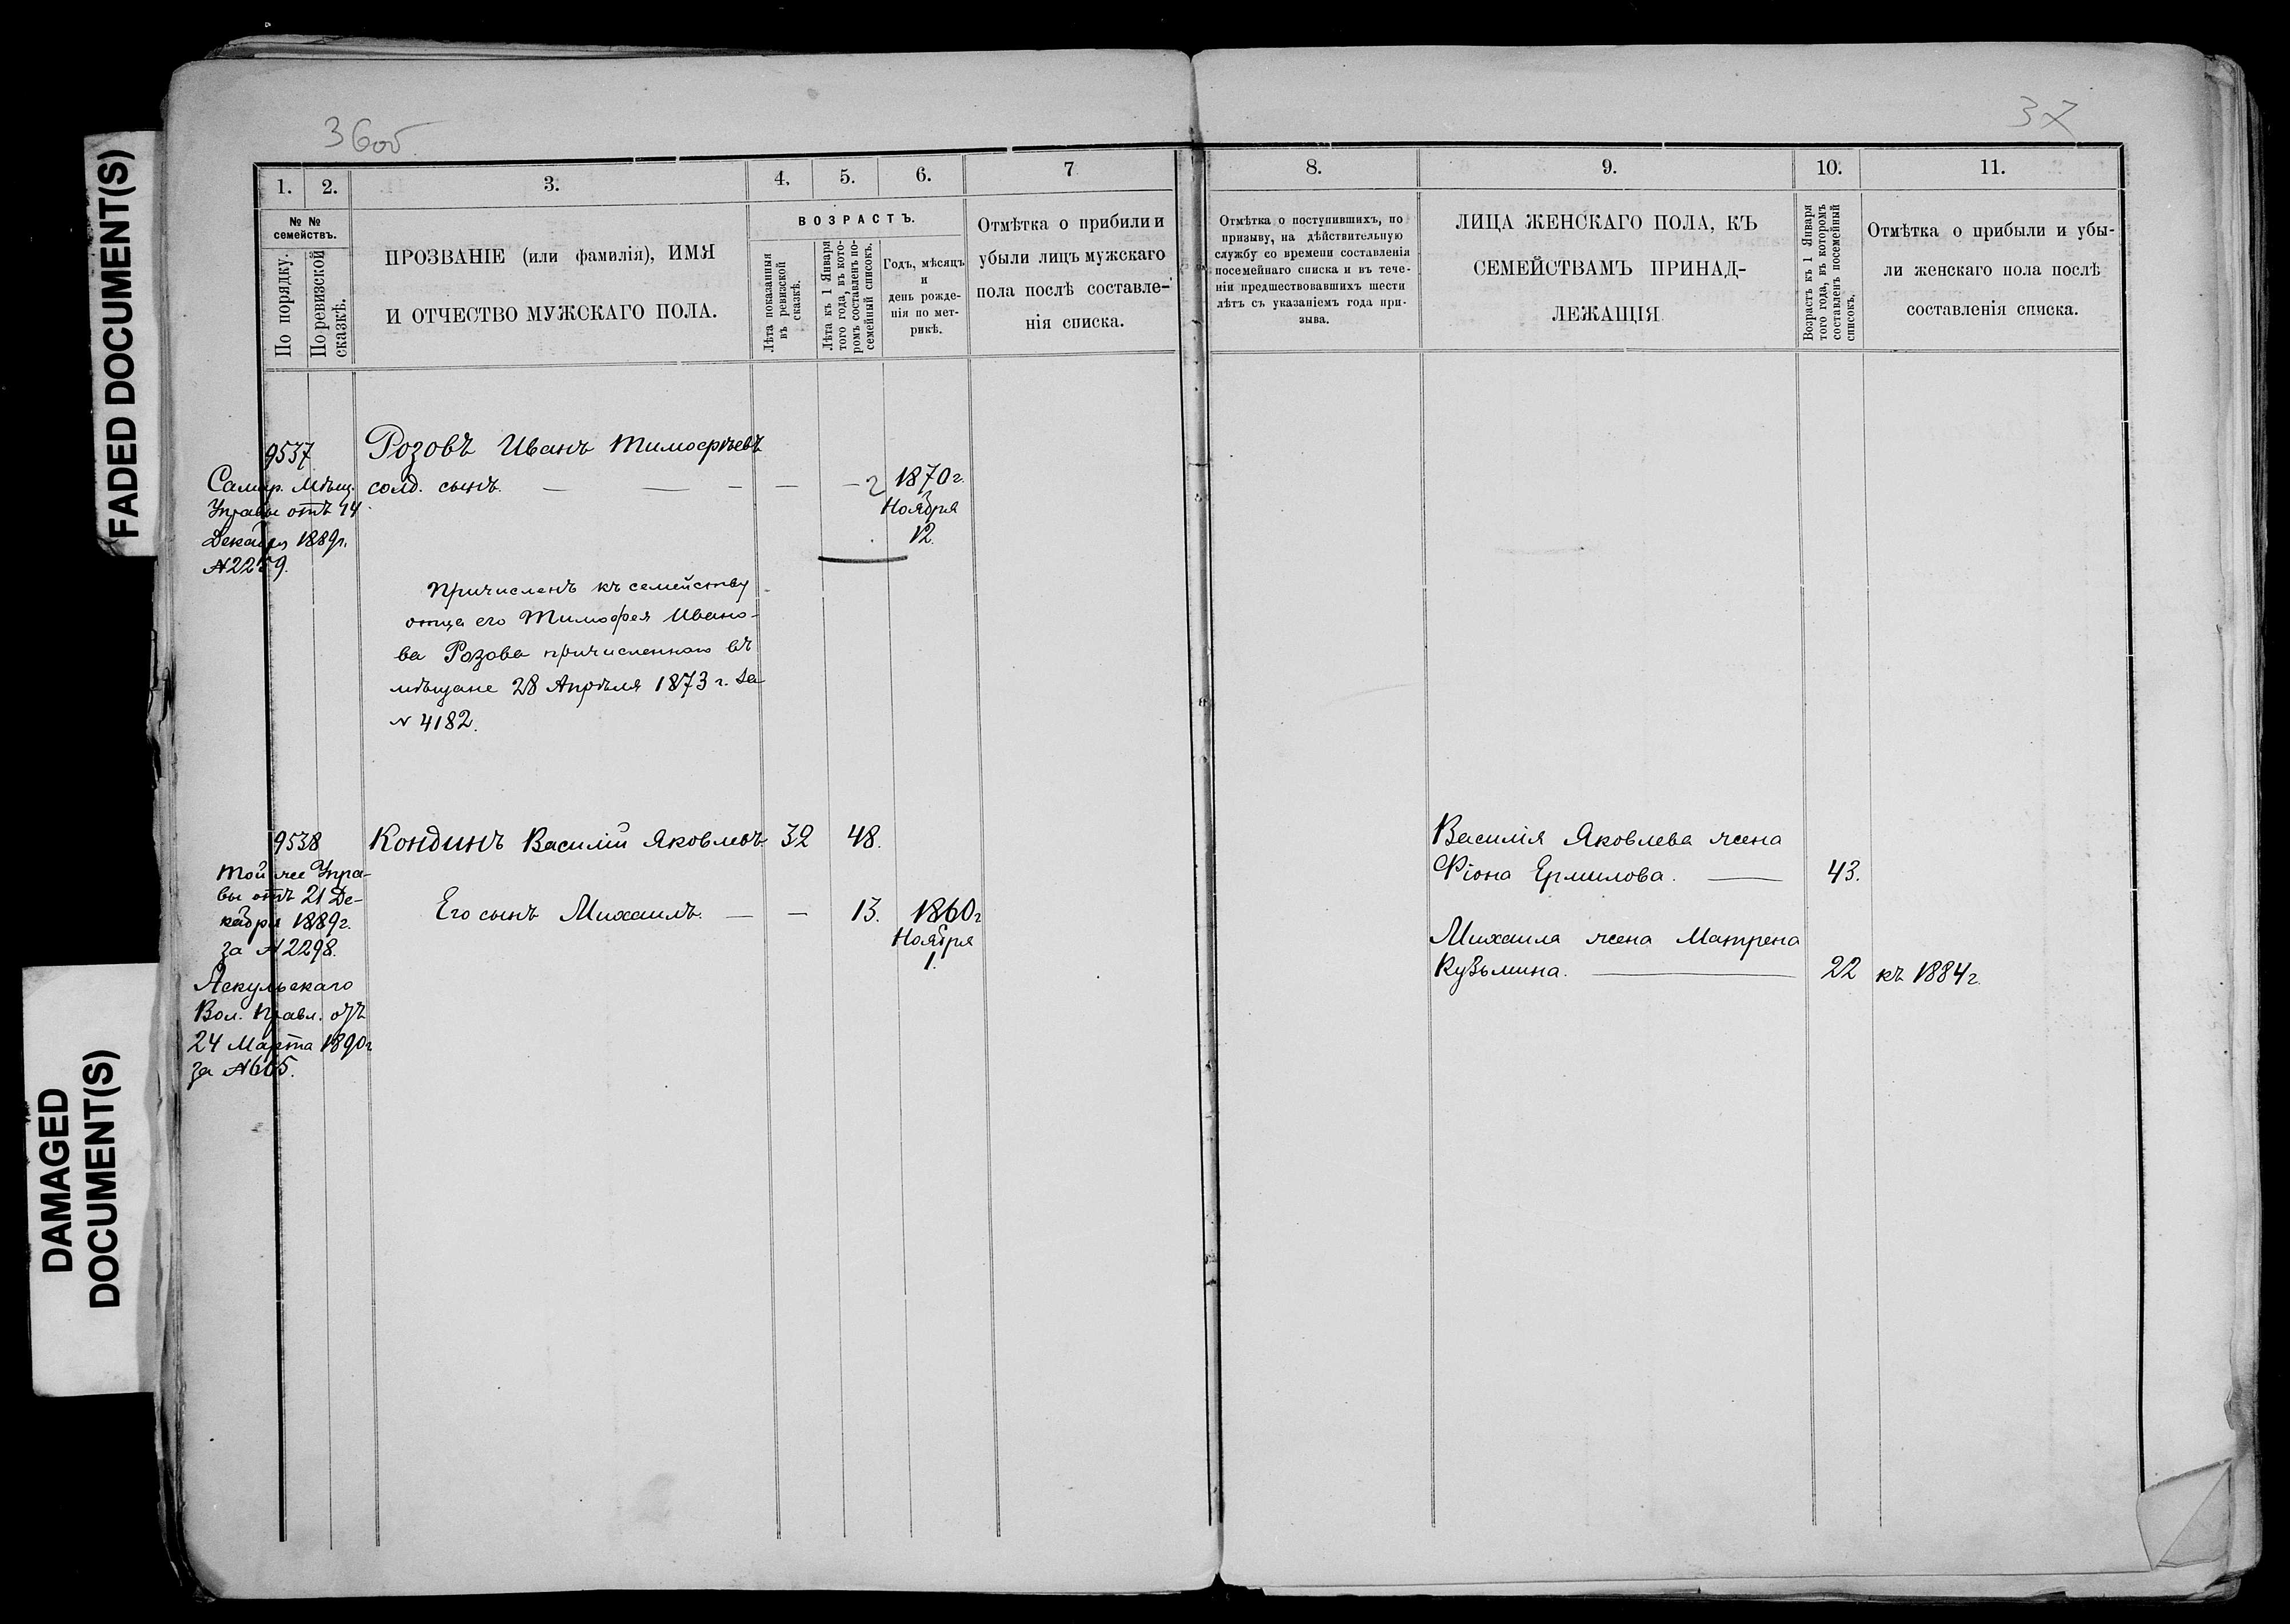 FADED DOCUMENT(S)
DAMAGED
DOCUMENT(S)
36об
37
1.
2.
3.
4.
5.
6.
7
8.
9.
10.
11.
№ №
семействъ.
По порядку.
По ревизской
сказкѣ.
ПРОЗВАНІЕ (или фамилія), ИМЯ
И ОТЧЕСТВО МУЖСКАГО ПОЛА.
ВОЗРАСТЪ.
Лѣта показанныя
въ ревизской
сказкѣ.
Лѣта къ 1 Января
того года, въ кото-
ромъ составленъ по-
семейный списокъ.
Годъ, мѣсяцъ
и
день рожде-
нія по мет-
рикѣ.
Отмѣтка о прибили и
убыли лицъ мужскаго
пола послѣ составле-
нія списка.
Отмѣтка о поступившихъ, по
призыву, на дѣйствительную
службу со времени составленія
посемейнаго списка и въ тече-
ніи предшествовавшихъ шести
лѣтъ съ указаніемъ года при-
зыва.
ЛИЦА ЖЕНСКАГО ПОЛА, КЪ
СЕМЕЙСТВАМЪ ПРИНАД-
ЛЕЖАЩІЯ
Возрастъ къ 1 Января
того года, въ которомъ
составленъ посемейный
списокъ.
Отмѣтка о прибыли и убы-
ли женскаго пола послѣ
составленія списка.
9537
Самар. Мѣщ.
Управы отъ 14
Декабря 1889г.
№2259.
Розовъ Иванъ Тимофѣевъ
солд. сынъ. — — — — — 2
1870г.
Ноября
12.
Причисленъ къ семейству
отца его Тимофея Ивано-
ва Розова причисленнаго въ
мѣщане 28 Апрѣля 1873 г. за
№ 4182.
9538
Той же Упра-
вы отъ 21 Де-
кабря 1889г.
за №2298.
Аскульскаго
Вол. Правл. отъ
24 Марта 1890г
за №665.
Кондинъ Василій Яковлевъ 32 48.
Его сынъ Михаилъ. — — 13. 1860г
Ноября
1.
Василія Яковлева жена
Фіона Ермилова. — 43.
Михаила жена Матрена
Кузьмина. — 22 къ 1884г.